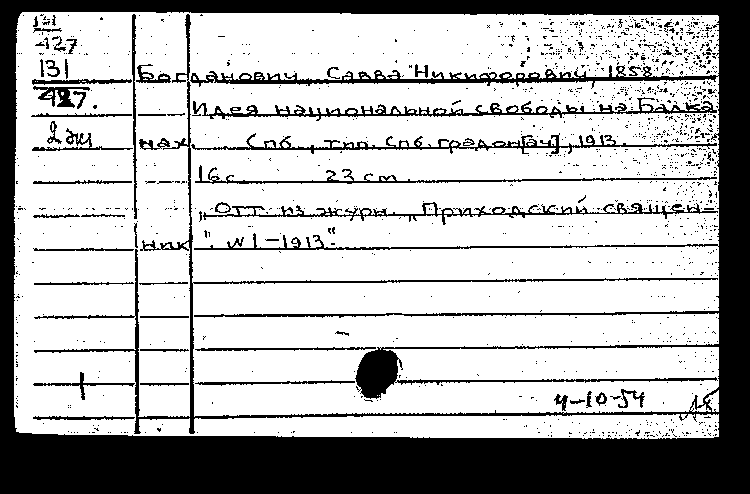 131
427
131
427.
2 эк
Богданович, Савва Никифорович, 1858
Идея национальной свободы на Балка
нах. Спб., тип. Спб. градон[ач], 1913.
16 с. 23 cm.
„Отт. из журн. „Приходский священ-
ник". № 1-1913".
1
4-10-54